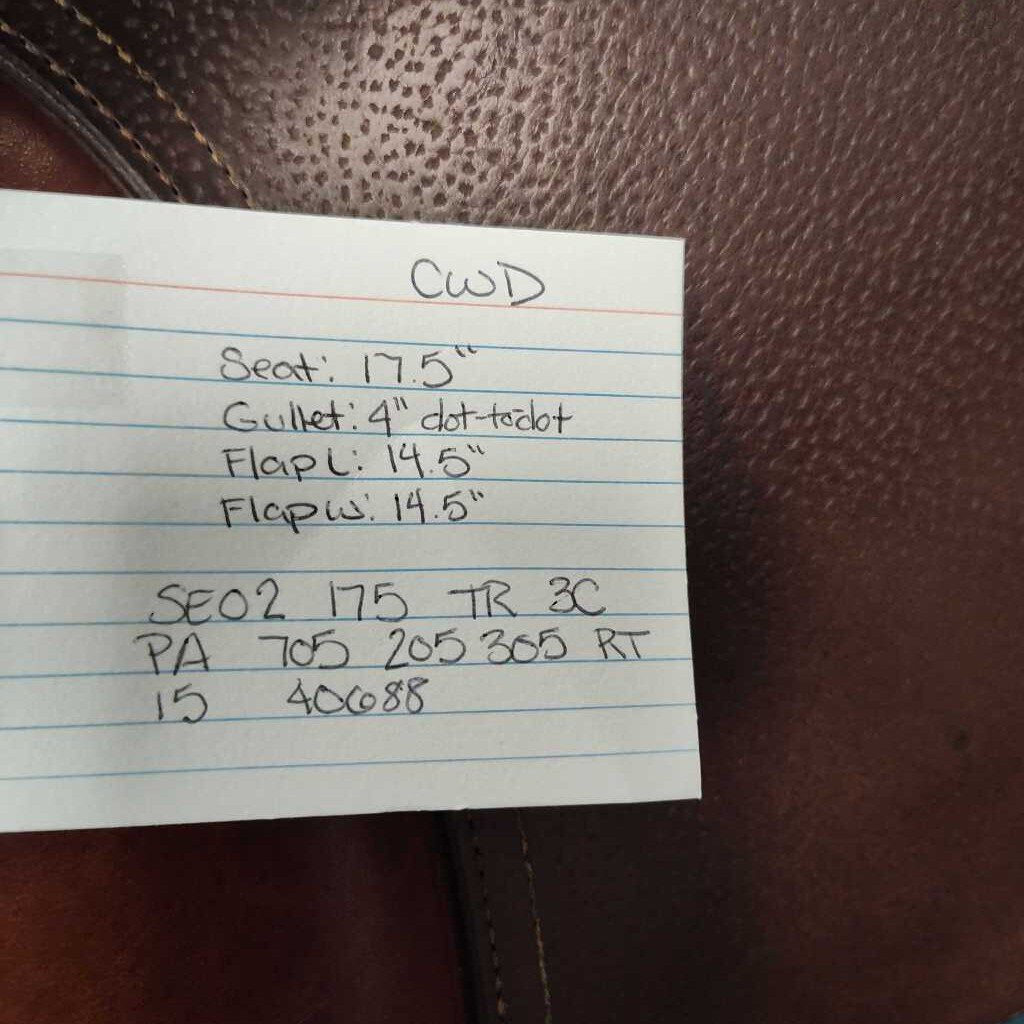 CWD
Seat: 17.5"
Gullet: 4" dot-to-dot
Flap L: 14.5"
Flap W: 14.5"
SE02 175 TR 3C
PA 705 205 305 RT
15 40688